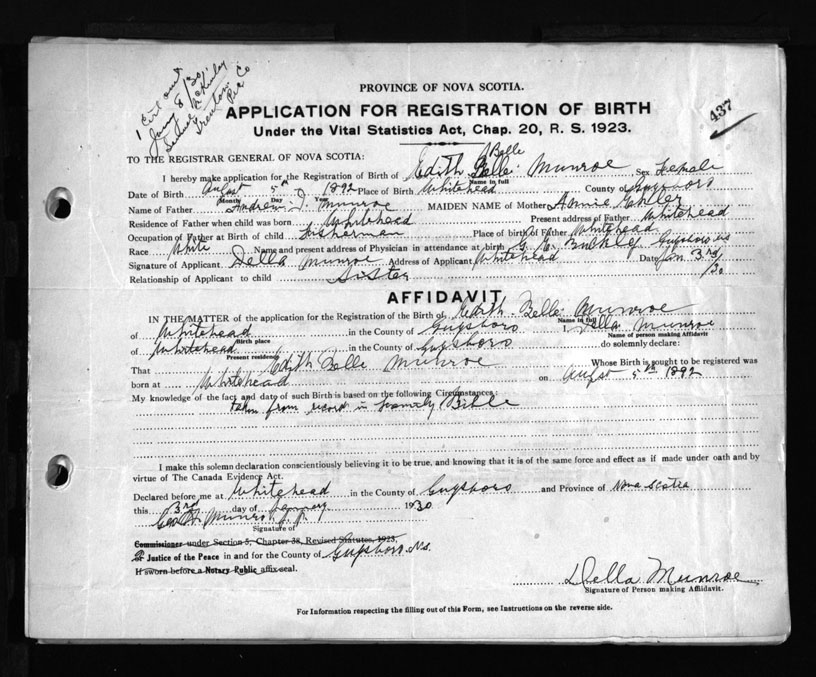 1 Cert out
Jany 8/30
Trenton
Pic Co
437
PROVINCE OF NOVA SCOTIA.
APPLICATION FOR REGISTRATION OF BIRTH
Under the Vital Statistics Act, Chap. 20, R. S. 1923.
TO THE REGISTRAR GENERAL OF NOVA SCOTIA:
Belle
I hereby make application for the Registration of Birth of Edith Belle Munroe Sex Female
Name in full
Date of Birth August 5th 1892 Place of Birth Whitehead County of Guysboro
Month Day Year
Name of Father Andrew J. Munroe MAIDEN NAME of Mother Annie
Residence of Father when child was born Whitehead Present address of Father Whitehead
Occupation of Father at Birth of child fisherman Place of birth of Father Whitehead
Race White Name and present address of Physician in attendance at birth G. E. Buckley Guysboro NS
Signature of Applicant Della Munroe Address of Applicant Whitehead Date Jan 3rd
Relationship of Applicant to child Sister /30
AFFIDAVIT
IN THE MATTER of the application for the Registration of the Birth of Edith Belle Munroe
Name in full
of Whitehead in the County of Guysboro I, Della Munroe
Birth place Name of person making Affidavit
of Whitehead in the County of Guysboro do solemnly declare:
Present residence
That Edith Belle Munroe Whose Birth is sought to be registered was
born at Whitehead on August 5th 1892
My knowledge of the fact and date of such Birth is based on the following Circumstances:
taken from record in family Bible
I make this solemn declaration conscientiously believing it to be true, and knowing that it is of the same force and effect as if made under oath and by
virtue of The Canada Evidence Act.
Declared before me at Whitehead in the County of Guysboro and Province of Nova Scotia
this 3rd day of January 1930
Geo H. Munro J.P.
Signature of
Commissioner under Section 5, Chapter 38, Revised Statutes, 1923,
or Justice of the Peace in and for the County of Guysboro Ns.
If sworn before a Notary Public affix seal.
Della Munroe
Signature of Person making Affidavit.
For Information respecting the filling out of this Form, see Instructions on the reverse side.